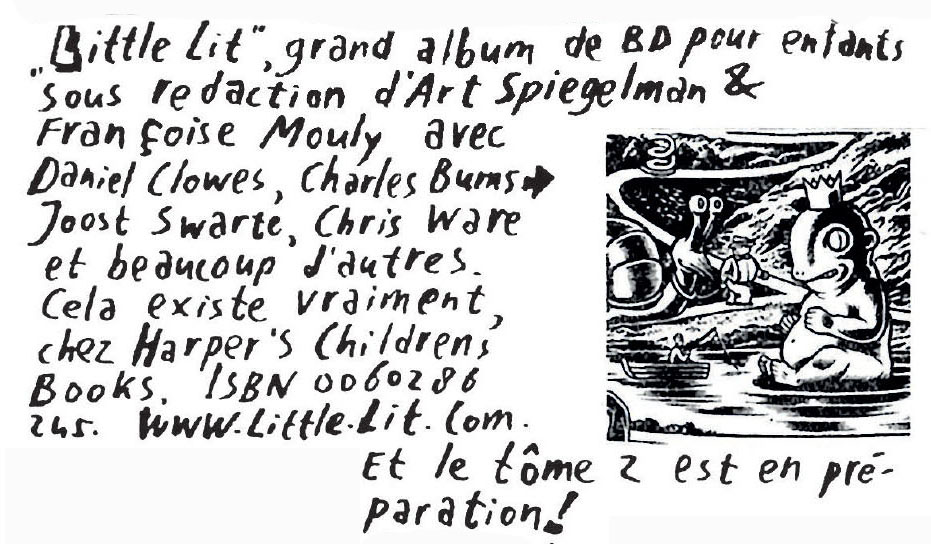 „Little Lit", grand album de BD pour enfants
sous redaction d'Art Spiegelman &
Françoise Mouly avec
Daniel Clowes, Charles Burns→
Joost Swarte, Chris Ware
et beaucoup d'autres.
Cela existe vraiment,
chez Harper's Childrens
Books. ISBN 0060286
245. WWW.Little.Lit.Com.
Et le tôme 2 est en pré-
paration!